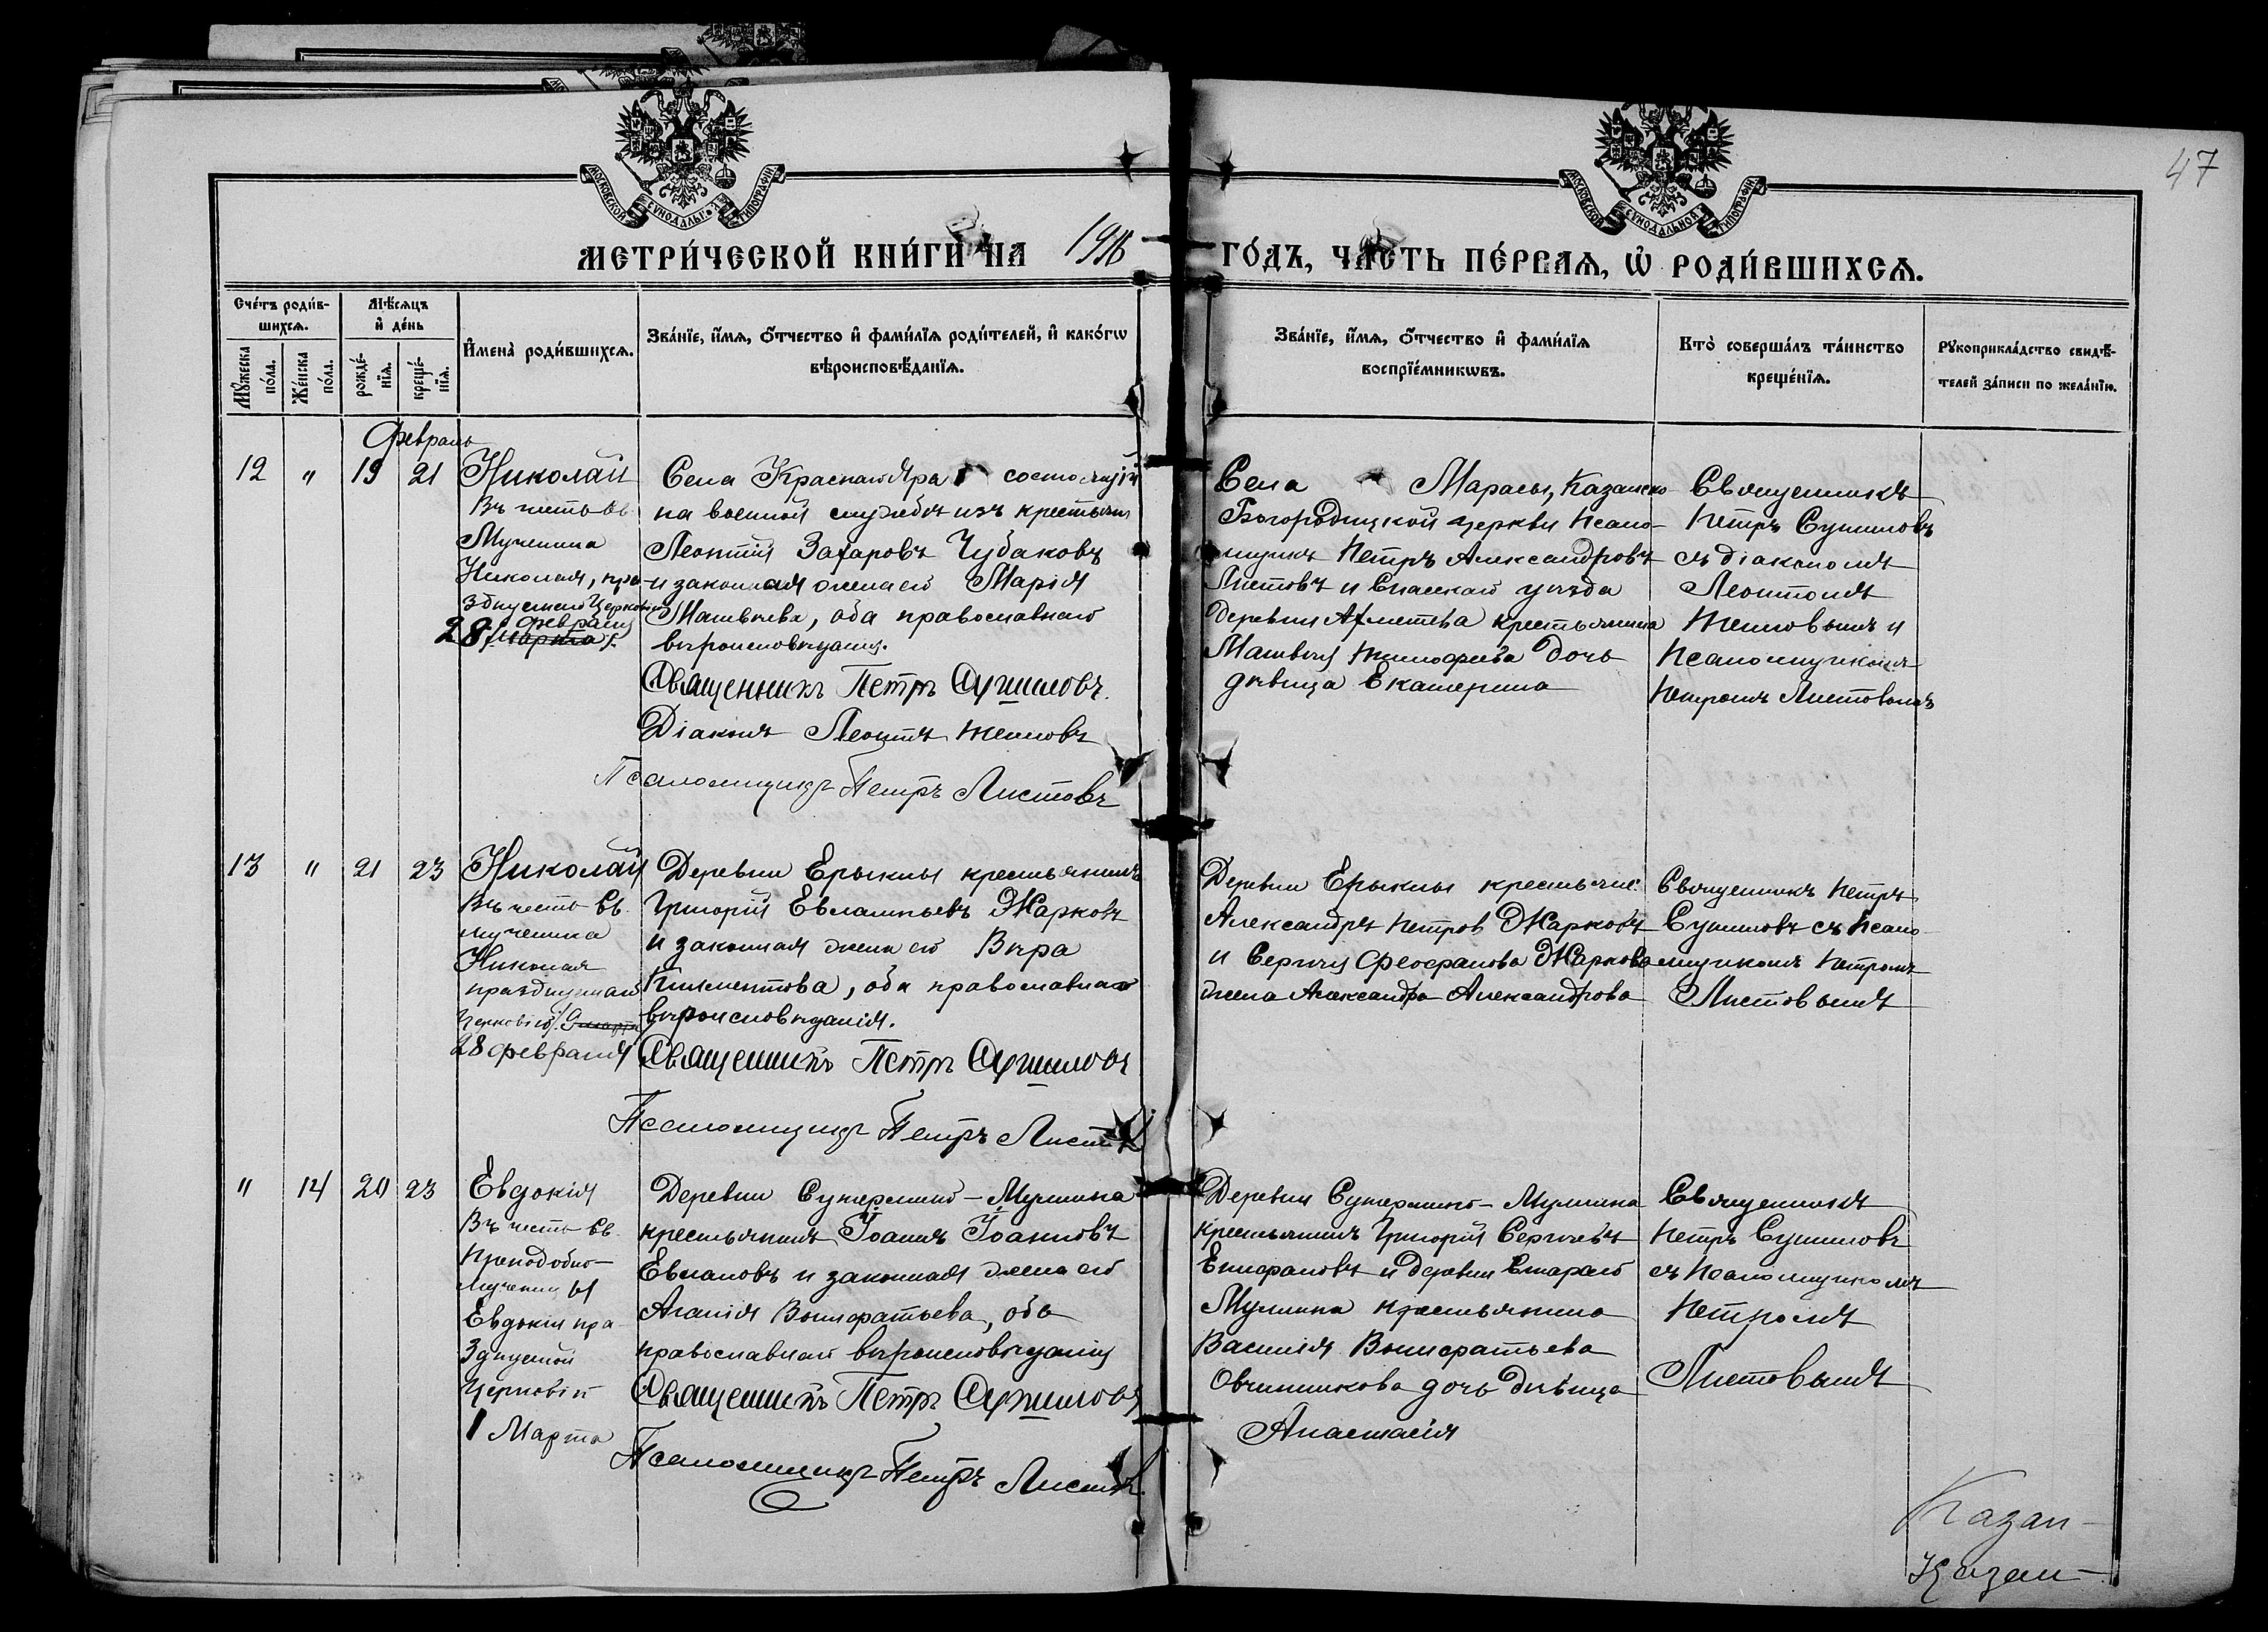 47
МЕТРИ́ЧЕСКОЙ КНИ́ГИ НА 1916 ГО́ДЪ, ЧА́СТЬ ПЕ́РВАЯ, Ѡ РОДИ́ВШИХСЯ.
МОСКОВСКОЙ СѴНОДАЛЬНОЙ ТИПОГРАФІИ
МОСКОВСКОЙ СѴНОДАЛЬНОЙ ТИПОГРАФІИ
Сче́тъ роди́в-
шихся.
Му́жеска по́ла.
Же́нска по́ла.
Мѣ́сяцъ
и́ де́нь
рожде́-
нїя.
креще́-
нїя.
И҆мена̀ роди́вшихся.
Зва́нїе, и҆́мя, ѻ҆́тчество и҆ фами́лїя роди́телей, и҆ како́гѡ
вѣроисповѣ́данїя.
Зва́нїе, и҆́мя, ѻ҆́тчество и҆ фами́лїя
воспрїе́мникѡвъ.
Кто̀ соверша́лъ та́инство
креще́нїя.
Рꙋкоприкла́дство свидѣ́-
телей за́писи по жела́нїю.
Февраль
12 " 19 21
Николай
Въ честь Св.
Мученика
Николая, пра-
зднуемаго Церковію
28 февраля
марта
Села Краснаго Яра состоящій
на военной службѣ изъ крестьян
Леонтій Захаровъ Чубаковъ
и законная жена его Марія
Матвѣева, оба православнаго
вѣроисповѣданія.
Священникъ Петръ Сушиловъ.
Діаконъ Леонтій
Псаломщикъ Петръ Листовъ
Села Марасы, Казанско-
Богородицкой церкви псало-
мщикъ Петръ Александровъ
Листовъ и Спасскаго уѣзда
деревни Ахметева крестьянина
Матвея Тимофеева дочь
дѣвица Екатерина
Священникъ
Петръ Сушиловъ
съ діакономъ
Леонтіемъ
и
Псаломщикомъ
Петромъ Листовымъ
13 " 21 23
Николай
Въ честь Св.
мученика
Николая
празднуемаго
Церковію 9 марта
28 февраля
Деревни Ерыклы крестьянинъ
Григорій Евлампьевъ Жарковъ
и законная жена его Вѣра
Климентова, оба православнаго
вѣроисповѣданія.
Священникъ Петръ Сушиловъ
Псаломщикъ Петръ Листовъ
Деревни Ерыклы крестьяне:
Александръ Петров Жарковъ
и Сергѣя Феофанова Жаркова
жена Александра Александрова
Священникъ Петръ
Сушиловъ съ Псало-
мщикомъ Петромъ
Листовымъ
" 14 20 23
Евдокія
Въ честь Св.
Преподобно-
Мученицы
Евдокіи пра-
зднуемой
Церковію
1 Марта
Деревни Мулина
крестьянинъ Іоаннъ Іоанновъ
Евлановъ и законная жена его
Агапія Вонифатьева, оба
православнаго вѣроисповѣданія
Священникъ Петръ Сушиловъ
Псаломщикъ Петръ Листовъ.
Деревни Мулина
крестьянинъ Григорій Сергѣевъ
Епифановъ и деревни Стараго
Мулина крестьянина
Василія Вонифатьева
Овчинникова дочь дѣвица
Анастасія
Священникъ
Петръ Сушиловъ
съ Псаломщикомъ
Петромъ
Листовымъ
Казан-
Казан-